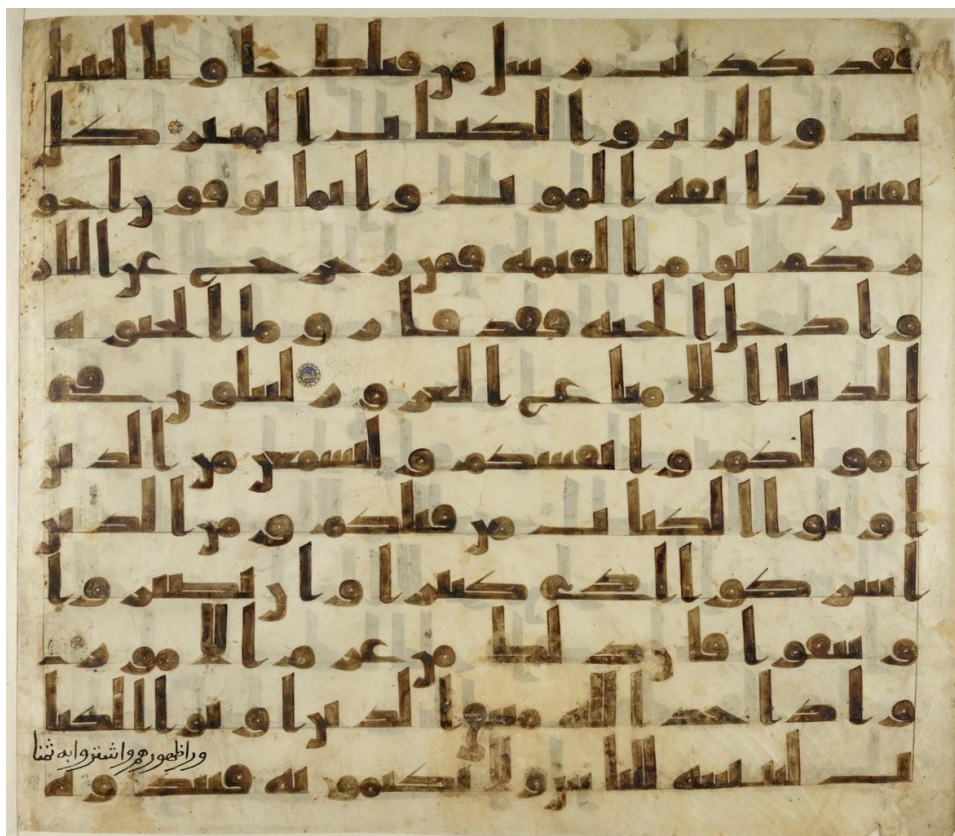 فقد كذب رسل من قبلك جاو بالبينا
ت والزبر وبالكتاب المنير كل
نفس ذائقه الموت وانما توفون اجو
ركم يوم القيمه فمن زحزح عن النار
وادخل الجنه فقد فاز وما الحيوه
الدنيا الا متاع الغرور لتبلون في
امولكم وانفسكم ولتسمعن من الذين
اوتوا الكتاب من قبلكم ومن الذين
اشركوا اذى كثيرا وان تصبروا
وتتقوا فان ذلك من عزم الامور
واذ اخذ الله ميثاق الذين اوتوا الكتا
ب لتبيننه للناس ولا تكتمونه فنبذوه
ورا ظهورهم واشتروا به ثمنا